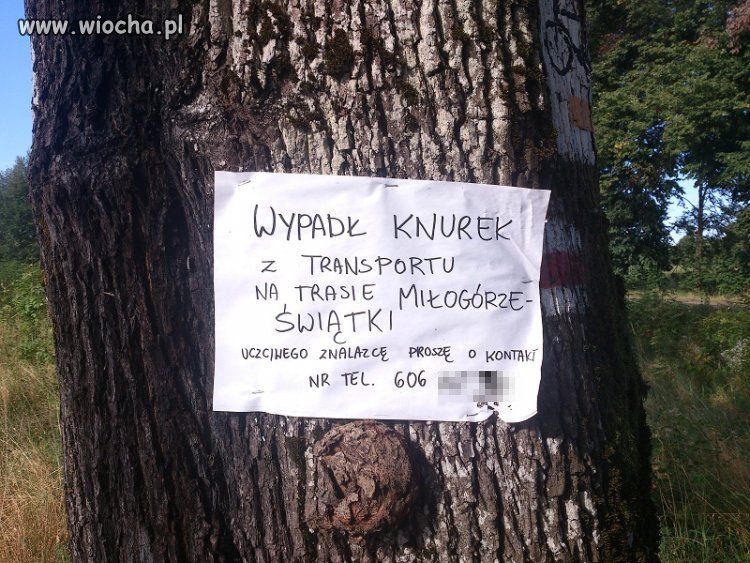 www.wiocha.pl
WYPADŁ KNUREK
Z TRANSPORTU
NA TRASIE MIŁOGÓRZE-
ŚWIĄTKI
UCZCIWEGO ZNALAZCĘ PROSZĘ O KONTAKT
NR TEL. 606